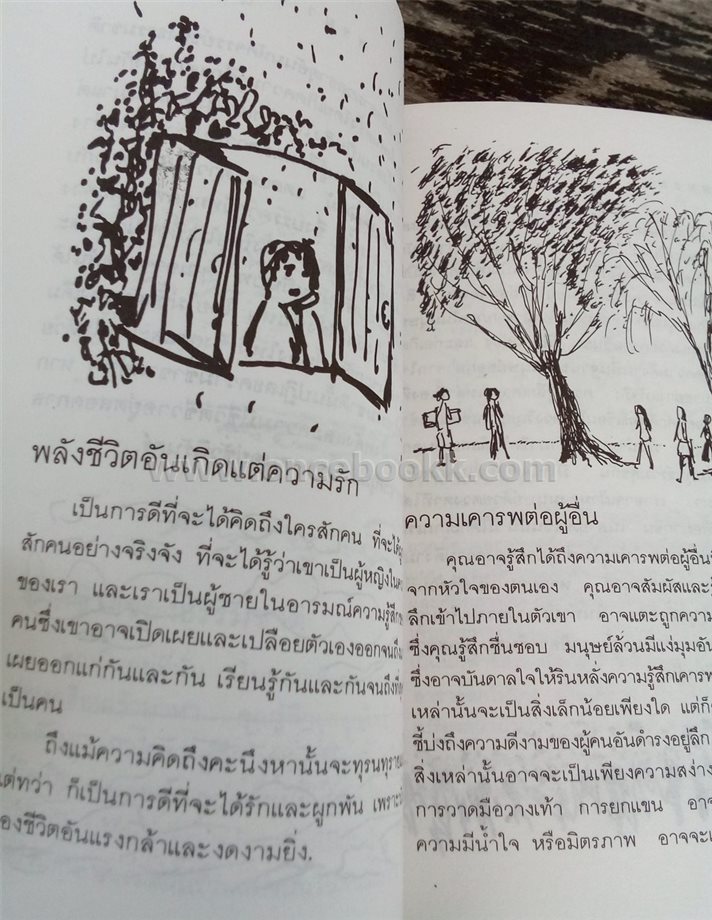 พลังชีวิตอันเกิดแต่ความรัก
เป็นการดีที่จะได้คิดถึงใครสักคน ที่จะได้
สักคนอย่างจริงจัง ที่จะได้รู้ว่าเขาเป็นผู้หญิงใน
ของเรา และเราเป็นผู้ชายในอารมณ์ความรู้สึก
คนซึ่งเขาอาจเปิดเผยและเปลือยตัวเองออกจนถึง
เผยออกแก่กันและกัน เรียนรู้กันและกันจนถึงที่
เป็นคน
ถึงแม้ความคิดถึงคะนึงหานั้นจะทุรนทุราย
แต่ทว่า ก็เป็นการดีที่จะได้รักและผูกพัน เพราะ
องชีวิตอันแรงกล้าและงดงามยิ่ง.
ความเคารพต่อผู้อื่น
คุณอาจรู้สึกได้ถึงความเคารพต่อผู้อื่น
จากหัวใจของตนเอง คุณอาจสัมผัสและ
ลึกเข้าไปภายในตัวเขา อาจแตะถูกความ
ซึ่งคุณรู้สึกชื่นชอบ มนุษย์ล้วนมีแง่มุมอัน
ซึ่งอาจบันดาลใจให้รินหลั่งความรู้สึกเคารพ
เหล่านั้นจะเป็นสิ่งเล็กน้อยเพียงใด แต่ก็
ชี้บ่งถึงความดีงามของผู้คนอันดำรงอยู่ลึก
สิ่งเหล่านั้นอาจจะเป็นเพียงความสง่าง
การวาดมือวางเท้า การยกแขน อาจ
ความมีน้ำใจ หรือมิตรภาพ อาจจะเ